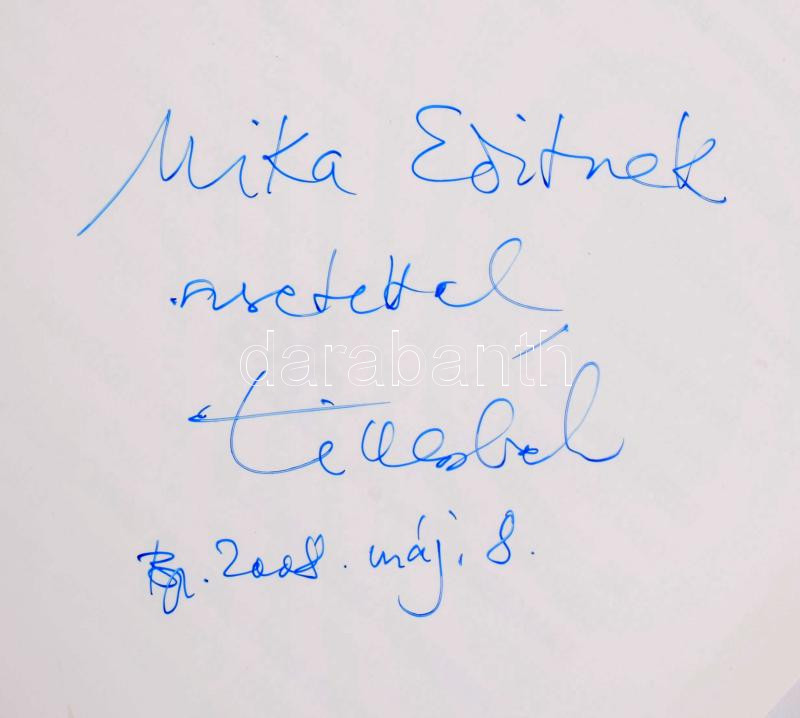 Mika Editnek
szeretettel
darabanth
Bp. 2008. máj. 8.